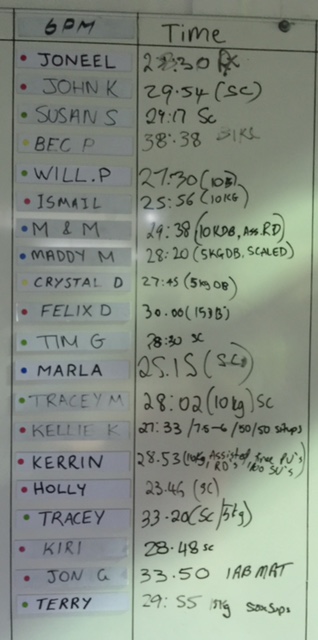 6PM Time
JONEEL 2 :30 RX
JOHN K 29.54 (SC)
SUSAN S 29:17 SC
BEC P 38:38
WILL.P 27:30
ISMAIL 25:56 (10KG)
M & M 29:38 (10KDB, ASS.RD)
MADDY M 28:20 (5KGDB, SCALED)
CRYSTAL D 27:45 (5kgDB)
FELIX D 30.00
TIM G 28:30 SC
MARLA 25.15 (SC)
TRACEY M 28:02 (10kg) SC
KELLIE K 27:33 /7.5-6 /50/50 situps
KERRIN 28.53 (10kg, Assisted RD's, PU's SU's)
HOLLY 23.45 (SC)
TRACEY 33.20 (SC/5kg)
KIRI 28.48 SC
JON G 33.50 1ABMAT
TERRY 29:55 15kg